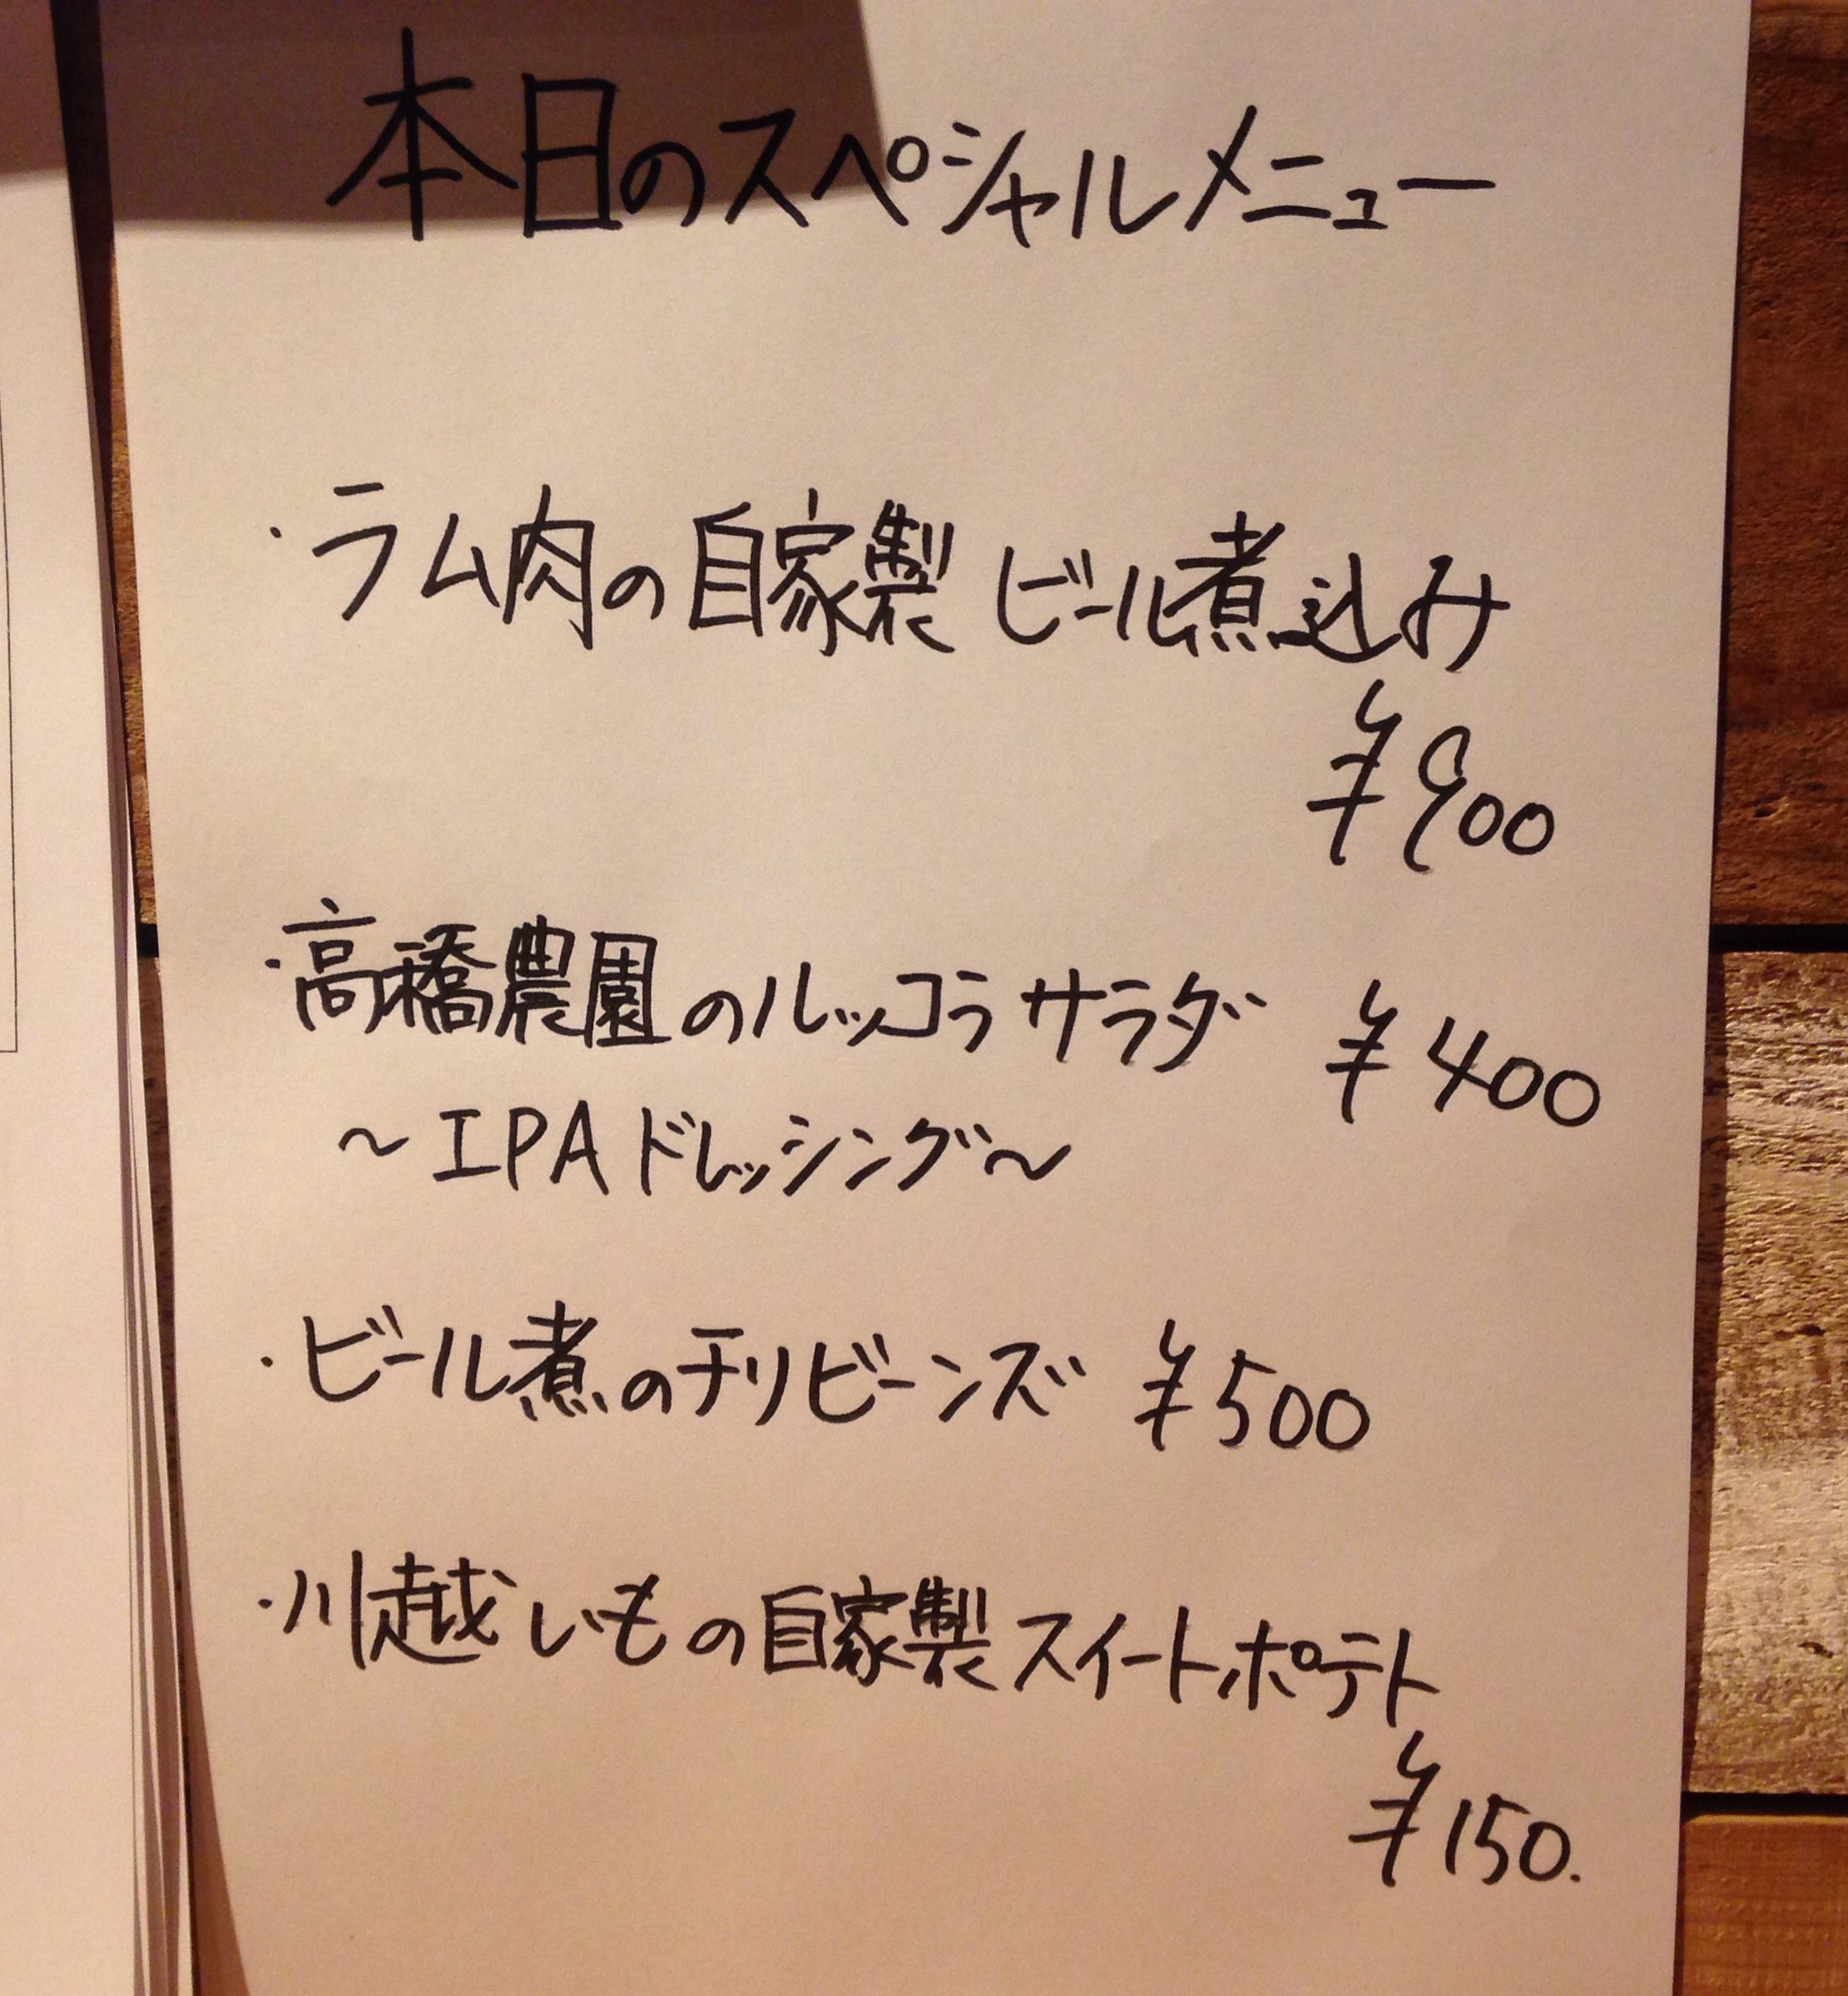 本日のスペシャルメニュー
・ラム肉の自家製ビール煮込み
¥900
・高橋農園のルッコラサラダ ¥400
～IPAドレッシング～
・ビール煮のチリビーンズ ¥500
・川越いもの自家製スイートポテト
¥150.